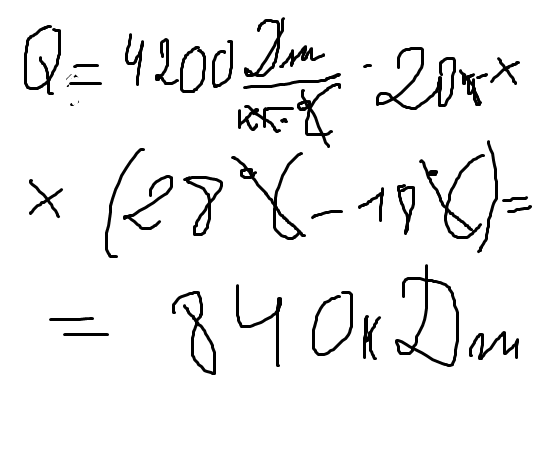 Q = 4200 Дж/кг·°C · 20кг ×
× (28°C − 18°C) =
= 840кДж